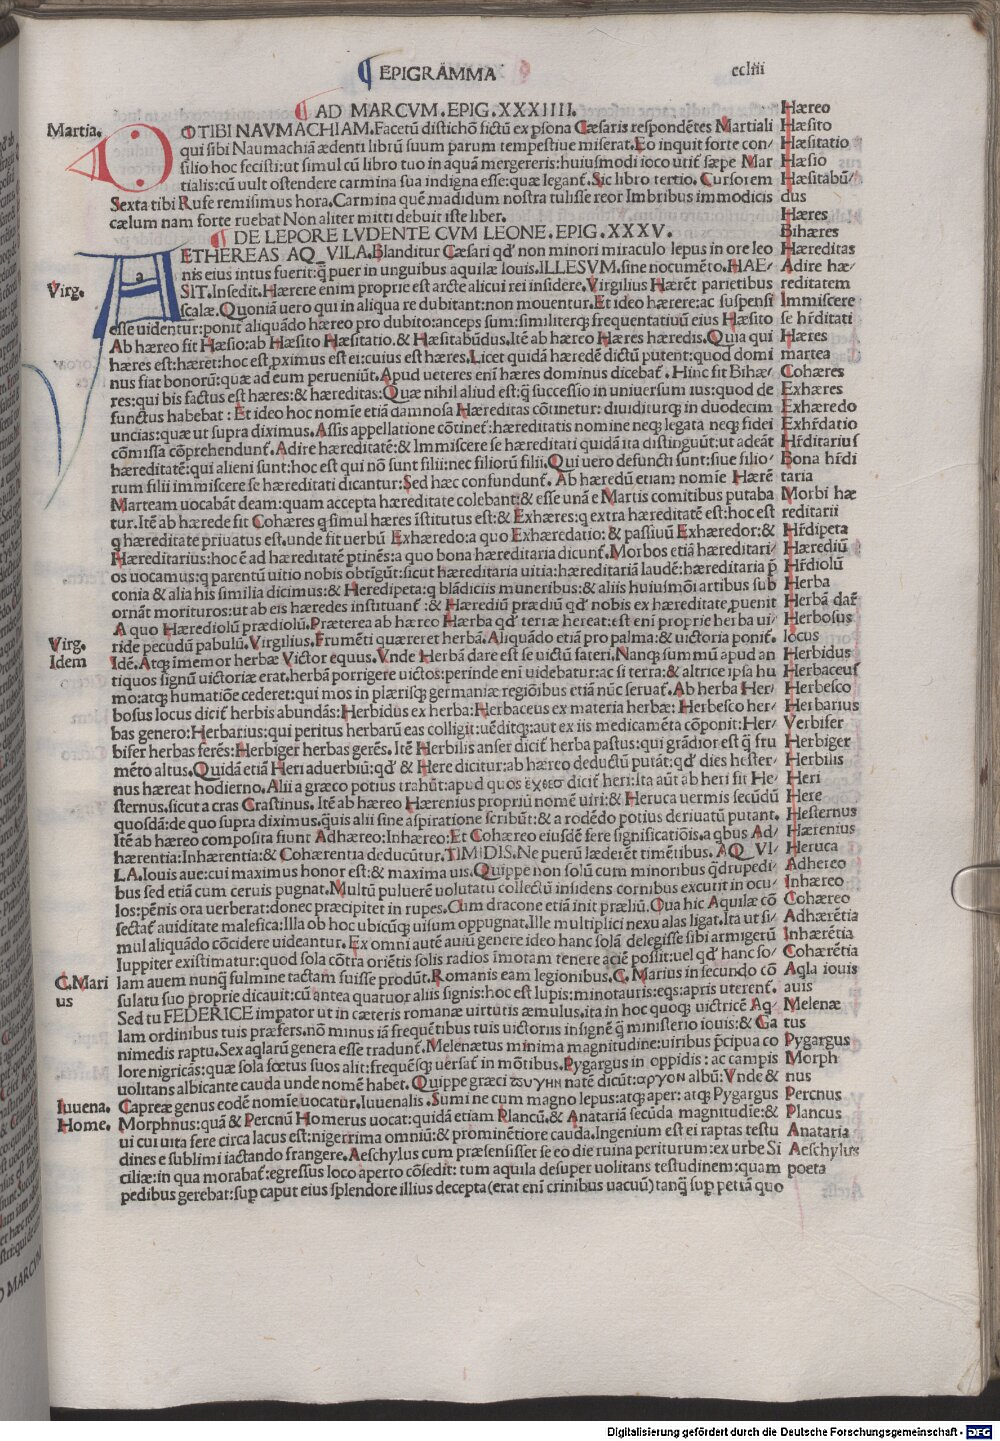 EPIGRAMMA
ccliii
AD MARCVM.EPIG.XXXIIII.
Martia.
D O TIBI NAVMACHIAM.Facetū distichō fictū ex psona Cæsaris respondētes Martiali
qui sibi Naumachiā ædenti librū suum parum tempestiue miserat.Eo inquit forte con-
silio hoc fecisti:ut simul cū libro tuo in aquā mergereris:huiusmodi ioco utit̄ sæpe Mar
tialis:cū uult ostendere carmina sua indigna esse:quæ legant̄.Sic libro tertio.Cursorem
Sexta tibi Rufe remisimus hora.Carmina quē madidum nostra tulisse reor Imbribus immodicis
cælum nam forte ruebat Non aliter mitti debuit iste liber.
DE LEPORE LVDENTE CVM LEONE.EPIG.XXXV.
AETHEREAS AQVILA.Blanditur Cæsari qd' non minori miraculo lepus in ore leo
nis eius intus fuerit:q̄ puer in unguibus aquilæ Iouis.ILLESVM.sine nocumēto.HAE-
Virg.
SIT.Insedit.Hærere enim proprie est arcte alicui rei insidere.Virgilius Hærēt parietibus
scalæ.Quoniā uero qui in aliqua re dubitant:non mouentur.Et ideo hærere:ac suspensi
esse uidentur:ponit̄ aliquādo hæreo pro dubito:anceps sum:similiterq; frequentatiuū eius Hæsito
Ab hæreo fit Hæsio:ab Hæsito Hæsitatio.& Hæsitabūdus.Itē ab hæreo Hæres hæredis.Quia qui
hæres est:hæret:hoc est,pximus est ei:cuius est hæres.Licet quidā hæredē dictū putent:quod domi
nus fiat bonorū:quæ ad eum perueniūt.Apud ueteres enī hæres dominus dicebat̄.Hinc fit Bihæ-
res:qui bis factus est hæres:& hæreditas:Quæ nihil aliud est:q̄ successio in uniuersum ius:quod de
functus habebat:Et ideo hoc nomīe etiā damnosa Hæreditas cōtinetur:diuiditurq; in duodecim
uncias:quæ ut supra diximus.Assis appellatione cōtinet̄:hæreditatis nomine neq; legata neq; fidei
cōmissa cōprehendunt̄.Adire hæreditatē:& Immiscere se hæreditati quidā ita distinguūt:ut adeāt
hæreditatē:qui alieni sunt:hoc est qui nō sunt filii:nec filiorū filii.Qui uero defuncti sunt:siue filio-
rum filii immiscere se hæreditati dicantur:Sed hæc confundunt̄.Ab hæredū etiam nomīe Hærē
Marteam uocabāt deam:quam accepta hæreditate colebant:& esse unā e Martis comitibus putaba
tur.Itē ab hærede fit Cohæres q simul hæres īstitutus est:& Exhæres:q extra hæreditatē est:hoc est
q hæreditate priuatus est.unde fit uerbū Exhæredo:a quo Exhæredatio:& passiuū Exhæredor:&
Hæreditarius:hoc ē ad hæreditatē ptinēs:a quo bona hæreditaria dicunt̄.Morbos etiā hæreditari-
os uocamus:q parentū uitio nobis obtigūt:sicut hæreditaria uitia:hæreditariā laudē:hæreditaria p̄
conia & alia his similia dicimus:& Heredipeta:q blādiciis muneribus:& aliis huiusmōi artibus sub
ornāt morituros:ut ab eis hæredes instituant̄:& Hærediū prædiū qd' nobis ex hæreditate puenit
A quo Hærediolū prædiolū.Præterea ab hæreo Hærba qd' terræ hereat:est enī proprie herba ui-
Virg.
ride pecudū pabulū.Virgilius.Frumēti quæreret herbā.Aliquādo etiā pro palma:& uictoria ponit̄.
Idem
Idē.Atq; īmemor herbæ Victor equus.Vnde Herbā dare est se uictū fateri.Nanq; summū apud an
tiquos signū uictoriæ erat.herbā porrigere uictos:perinde enī uidebatur:ac si terra:& altrice ipsa hu
mo:atq; humatiōe cederet:qui mos in plærisq; germaniæ regiōibus etiā nūc seruat̄.Ab herba Her-
bosus locus dicit̄ herbis abundās:Herbidus ex herba:Herbaceus ex materia herbæ:Herbesco her-
bas genero:Herbarius:qui peritus herbarū eas colligit:uēditq;:aut ex iis medicamēta cōponit:Her-
bifer herbas ferēs:Herbiger herbas gerēs.Itē Herbilis anser dicit̄ herba pastus:qui grādior est q̄ fru
mēto altus.Quidā etiā Heri aduerbiū:qd' & Here dicitur:ab hæreo deductū putāt:qd' dies hester-
nus hæreat hodierno.Alii a græco potius trahūt:apud quos ἐχθεσ dicit̄ heri:Ita aūt ab heri fit He-
sternus.sicut a cras Crastinus.Itē ab hæreo Hærenius propriū nomē uiri:& Heruca uermis secūdū
quosdā:de quo supra diximus.q̄uis alii sine aspiratione scribūt:& a rodēdo potius deriuatū putant.
Itē ab hæreo composita fiunt Adhæreo:Inhæreo:Et Cohæreo eiusdē fere significatiōis.a qbus Ad-
hærentia:Inhærentia:& Cohærentia deducūtur.TIMIDIS.Ne puerū læderēt timētibus.AQVI-
LA.Iouis aue:cui maximus honor est:& maxima uis.Quippe non solū cum minoribus q̄drupedi-
bus sed etiā cum ceruis pugnat.Multū puluerē uolutatu collectū insidens cornibus excutit in ocu-
los:pēnis ora uerberat:donec præcipitet in rupes.Cum dracone etiā init præliū.Qua hic Aquilæ cō
sectat̄ auiditate malefica:Illa ob hoc ubicūq; uisum oppugnat.Ille multiplici nexu alas ligat.Ita ut si-
mul aliquādo cōcidere uideantur.Ex omni autē auiū genere ideo hanc solā delegisse sibi armigerū
Iuppiter existimatur:quod sola cōtra oriētis solis radios īmotam tenere aciē possit:uel qd' hanc so-
C.Mari
lam auem nunq̄ fulmine tactam fuisse produt̄.Romanis eam legionibus.C.Marius in secundo cō
us
sulatu suo proprie dicauit:cū antea quatuor aliis signis:hoc est lupis:minotauris:eqs:apris uterent̄.
Sed tu FEDERICE impator ut in cæteris romanæ uirtutis æmulus.ita in hoc quoq; uictricē Aq-
lam ordinibus tuis præfers.nō minus iā frequētibus tuis uictoriis insignē q̄ ministerio iouis:& Ga
nimedis raptu.Sex aqlarū genera esse tradunt̄.Melenætus minima magnitudine:uiribus p̄cipua co
lore nigricās:quæ sola fœtus suos alit:frequēsq; uersat̄ in mōtibus.Pygargus in oppidis:ac campis
uolitans albicante cauda unde nomē habet.Quippe græci natē dicūt:αργον albū:Vnde &
Iuuena.
Capreæ genus eodē nomīe uocatur.Iuuenalis.Sumine cum magno lepus:atq; aper:atq; Pygargus
Home.
Morphnus:quā & Percnū Homerus uocat:quidā etiam Plancū.& Anatariā secūda magnitudīe:&
ui cui uita fere circa lacus est:nigerrima omniū:& prominētiore cauda.Ingenium est ei raptas testu
dines e sublimi iactando frangere.Aeschylus cum præsensisset se eo die ruina periturum:ex urbe Si
ciliæ:in qua morabat̄:egressus loco aperto cōsedit:tum aquila desuper uolitans testudinem:quam
pedibus gerebat:sup caput eius splendore illius decepta(erat enī crinibus uacuū)tanq̄ sup petrā quo
Hæreo
Hæsito
Hæsitatio
Hæsio
Hæsitabū-
dus
Hæres
Bihæres
Hæreditas
Adire hæ-
reditatem
Immiscere
se hr̄ditati
Hæres
martea
Cohæres
Exhæres
Exhæredo
Exhr̄datio
Hr̄ditarius
Bona hr̄di
taria
Morbi hæ
reditarii
Hr̄dipeta
Hærediū
Hr̄diolū
Herba
Herbā dar̄
Herbosus
locus
Herbidus
Herbaceus
Herbesco
Herbarius
Verbifer
Herbiger
Herbilis
Heri
Here
Hesternus
Hærenius
Heruca
Adhereo
Inhæreo
Cohæreo
Adhærētia
Inhærētia
Cohærētia
Aqla iouis
auis
Melenæ
tus
Pygargus
Morph
nus
Percnus
Plancus
Anataria
Aeschylus
poeta
Digitalisierung gefördert durch die Deutsche Forschungsgemeinschaft - DFG